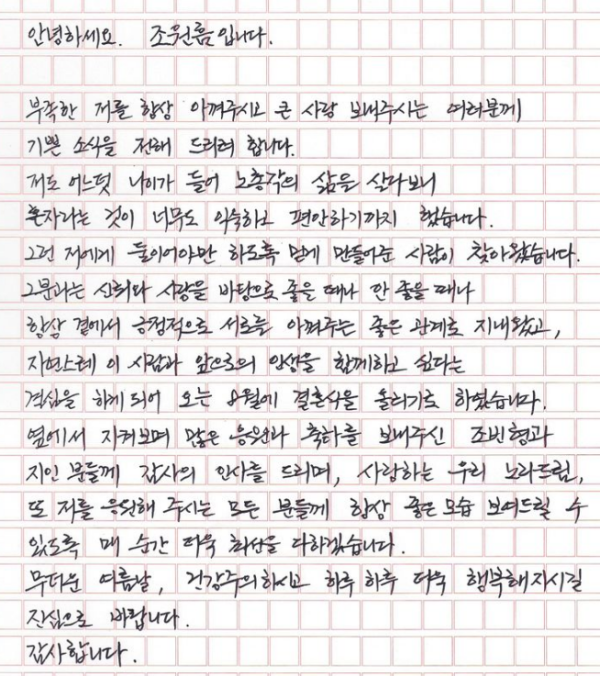 안녕하세요. 조원륨입니다.
부족한 저를 항상 아껴주시고 큰 사랑 보내주시는 여러분께
기쁜 소식을 전해 드리려 합니다.
저도 어느덧 나이가 들어 노총각의 삶을 살다보니
혼자라는 것이 너무도 익숙하고 편안하기까지 했습니다.
그런 저에게 둘이어야만 하도록 맘게 만들어준 사람이 찾아왔습니다.
그분과는 신뢰와 사랑을 바탕으로 좋을 때나 안 좋을 때나
항상 곁에서 긍정적으로 서로를 아껴주는 좋은 관계로 지내왔고,
자연스레 이 사람과 앞으로의 인생을 함께하고 싶다는
결심을 하게 되어 오는 8월에 결혼식을 올리기로 하였습니다.
옆에서 지켜보며 많은 응원과 축하를 보내주신 조빈형과
지인 분들께 감사의 인사를 드리며, 사랑하는 우리 노라드림,
또 저를 응원해 주시는 모든 분들께 항상 좋은 모습 보여드릴 수
있도록 매 순간 더욱 최선을 다하겠습니다.
무더운 여름날, 건강주의하시고 하루 하루 더욱 행복해지시길
진심으로 바랍니다.
감사합니다.